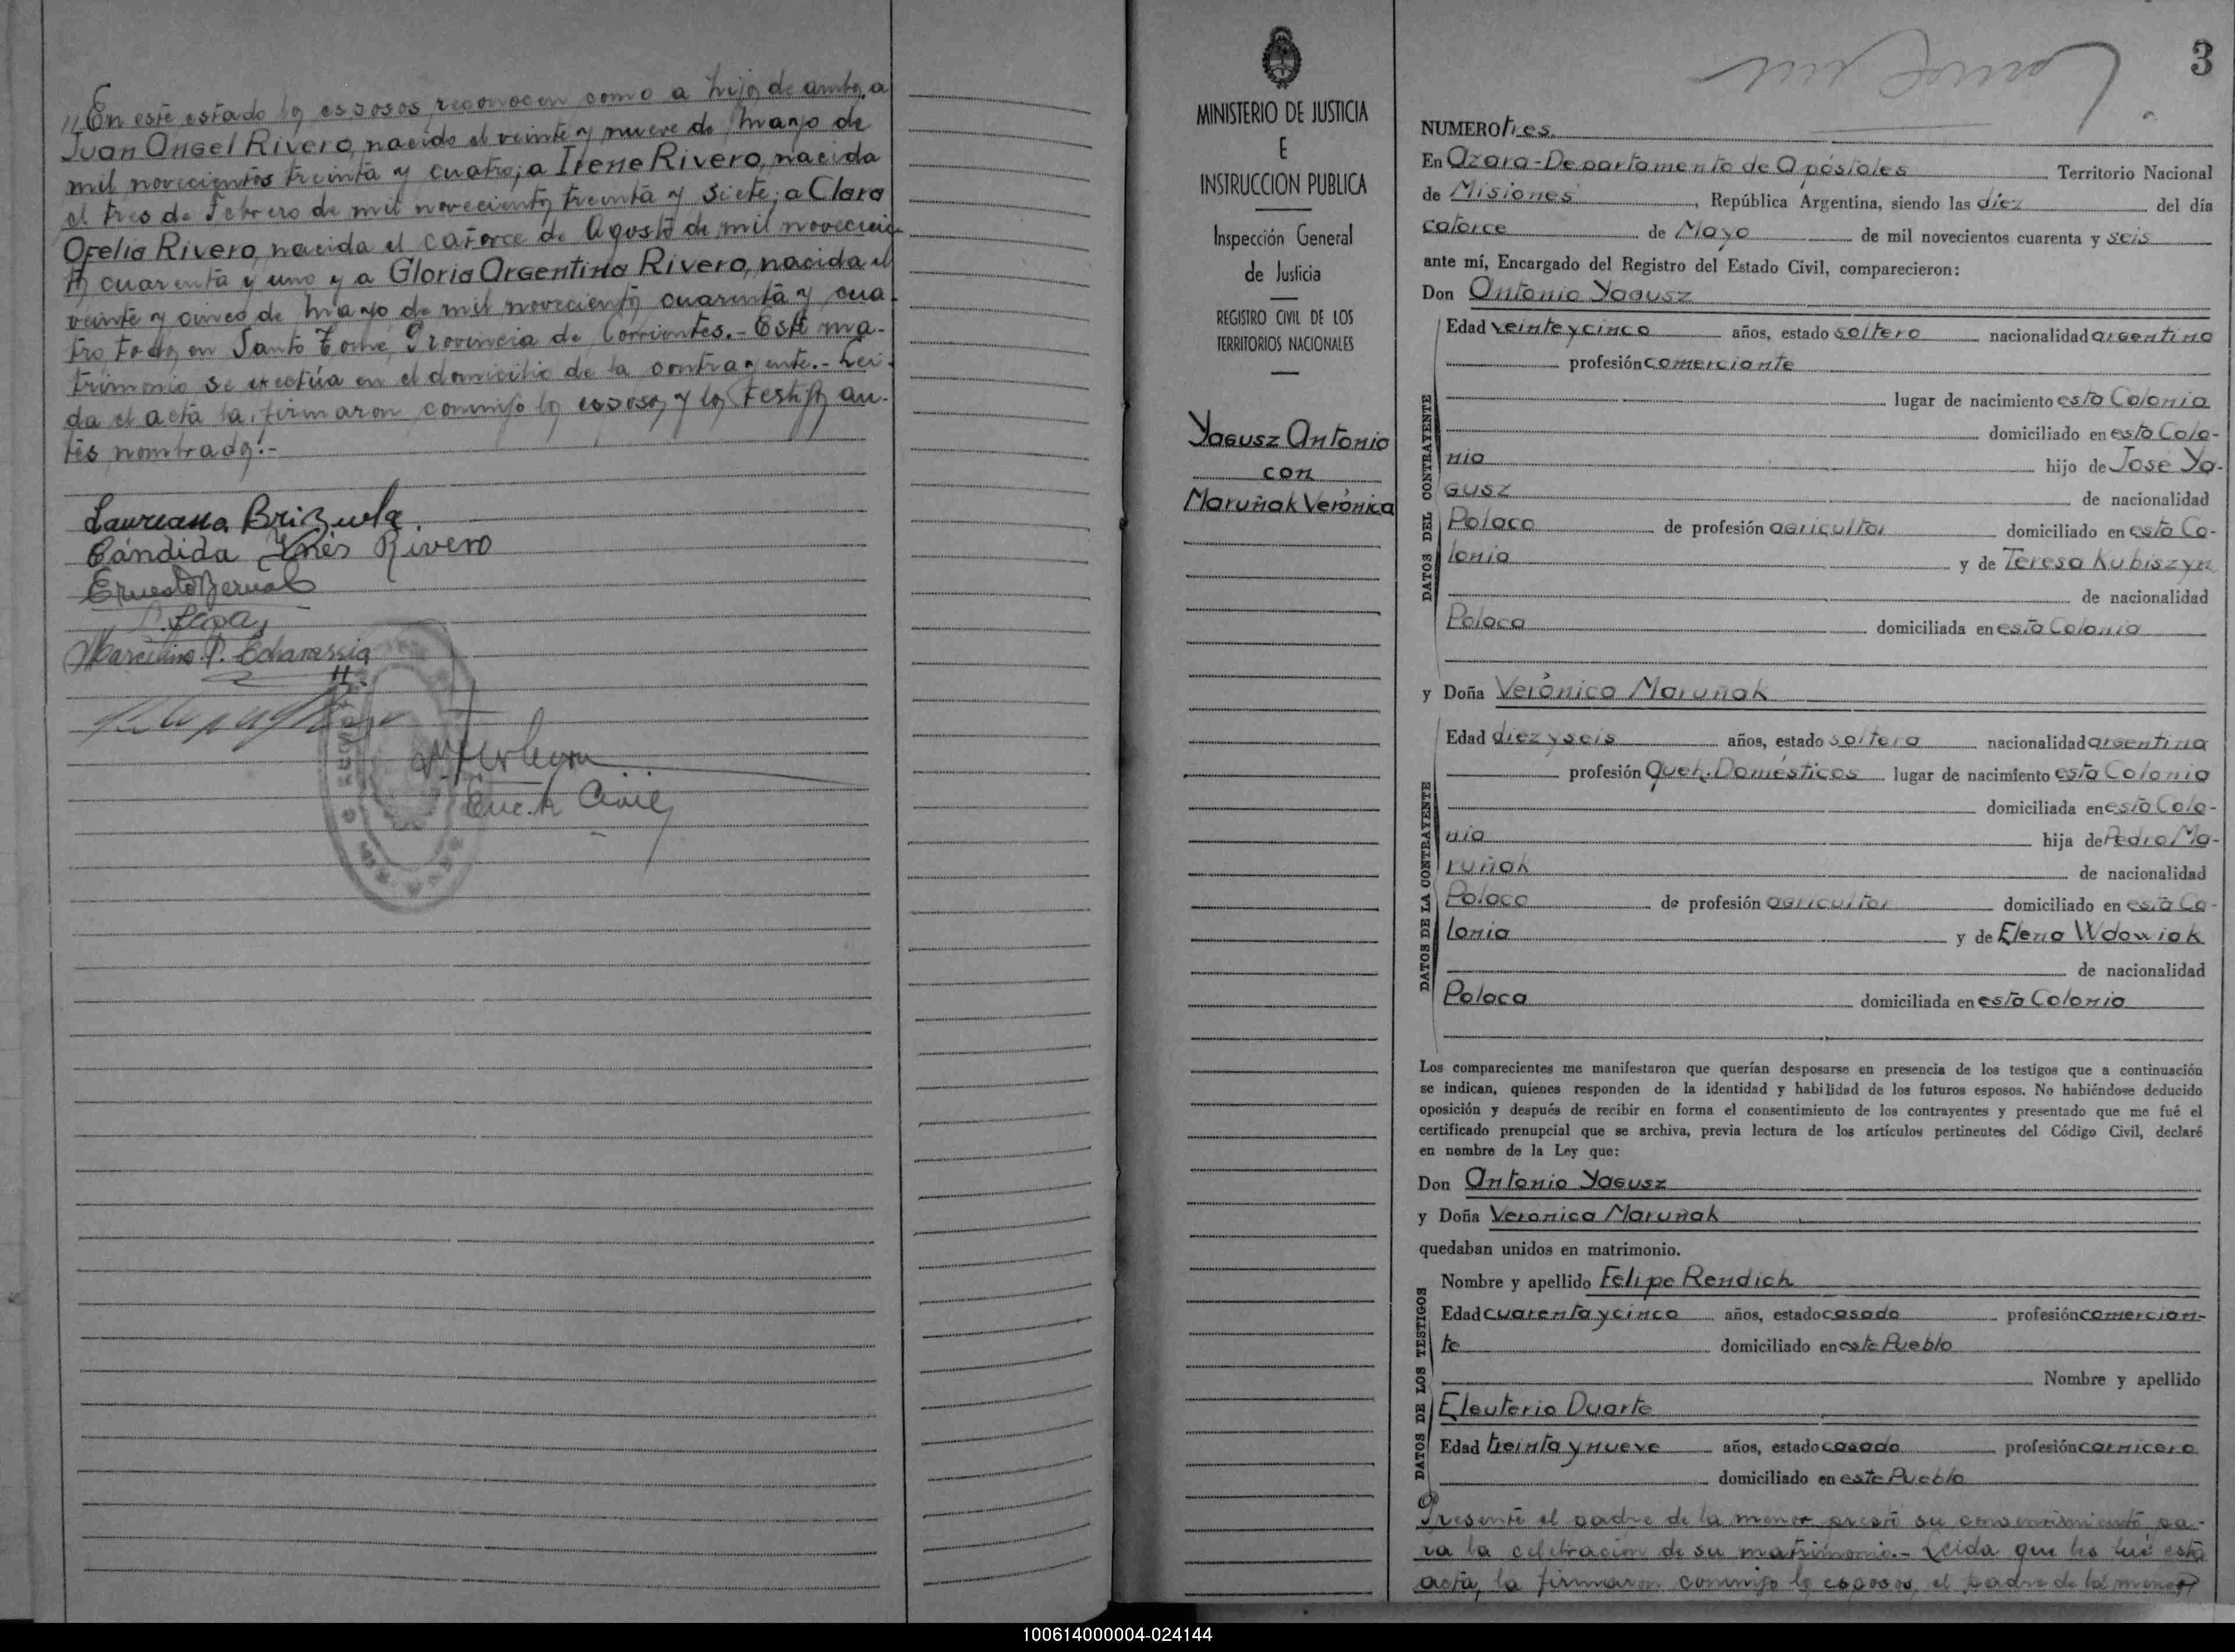 // En este estado los esposos reconocen como a hijos de ambos a
Juan Angel Rivero, nacido el veinte y nueve de Mayo de
mil novecientos treinta y cuatro; a Irene Rivero, nacida
el tres de Febrero de mil novecientos treinta y siete; a Clara
Ofelia Rivero, nacida el catorce de Agosto de mil novecien-
tos cuarenta y uno y a Gloria Argentina Rivero, nacida el
veinte y cinco de Mayo de mil novecientos cuarenta y cua-
tro todos en Santo Tomé, Provincia de Corrientes.- Este ma-
trimonio se efectúa en el domicilio de la contrayente.- Lei-
da el acta la firmaron conmigo los esposos y los testigos an-
tes nombrados.-
Laureano Brizuela.
Cándida Inés Rivero
Ernesto Bernal
Marcelino P. Echavassia
Enc. R. Civil
MINISTERIO DE JUSTICIA
E
INSTRUCCION PUBLICA
Inspección General
de Justicia
REGISTRO CIVIL DE LOS
TERRITORIOS NACIONALES
Yagusz Antonio
con
Maruñak Verónica
3
NUMERO tres.
En Azara - Departamento de Apóstoles Territorio Nacional
de Misiones, República Argentina, siendo las diez del día
catorce de Mayo de mil novecientos cuarenta y seis
ante mí, Encargado del Registro del Estado Civil, comparecieron:
Don Antonio Yagusz
DATOS DEL CONTRAYENTE
Edad veinte y cinco años, estado soltero nacionalidad argentina
profesión comerciante
lugar de nacimiento esta Colonia
domiciliado en esta Colo-
nia hijo de Jose Ya-
gusz de nacionalidad
Polaco de profesión agricultor domiciliado en esta Co-
lonia y de Teresa Kubiszyn
de nacionalidad
Polaca domiciliada en esta Colonia
y Doña Verónica Maruñak
DATOS DE LA CONTRAYENTE
Edad diez y seis años, estado soltera nacionalidad argentina
profesión Queh. Domésticos lugar de nacimiento esta Colonia
domiciliada en esta Colo-
nia hija de Pedro Ma-
ruñak de nacionalidad
Polaco de profesión agricultor domiciliado en esta Co-
lonia y de Elena Wdowiak
de nacionalidad
Polaca domiciliada en esta Colonia
Los comparecientes me manifestaron que querían desposarse en presencia de los testigos que a continuación
se indican, quienes responden de la identidad y habilidad de los futuros esposos. No habiéndose deducido
oposición y después de recibir en forma el consentimiento de los contrayentes y presentado que me fué el
certificado prenupcial que se archiva, previa lectura de los artículos pertinentes del Código Civil, declaré
en nombre de la Ley que:
Don Antonio Yagusz
y Doña Veronica Maruñak
quedaban unidos en matrimonio.
DATOS DE LOS TESTIGOS
Nombre y apellido Felipe Rendich
Edad cuarenta y cinco años, estado casado profesión comercian-
te domiciliado en este Pueblo
Nombre y apellido
Eleuterio Duarte
Edad treinta y nueve años, estado casado profesión carnicero
domiciliado en este Pueblo
Presente el padre de la menor prestó su consentimiento pa-
ra la celebración de su matrimonio.- Leida que les fué esta
acta, la firmaron conmigo los esposos, el padre de la menor
100614000004-024144